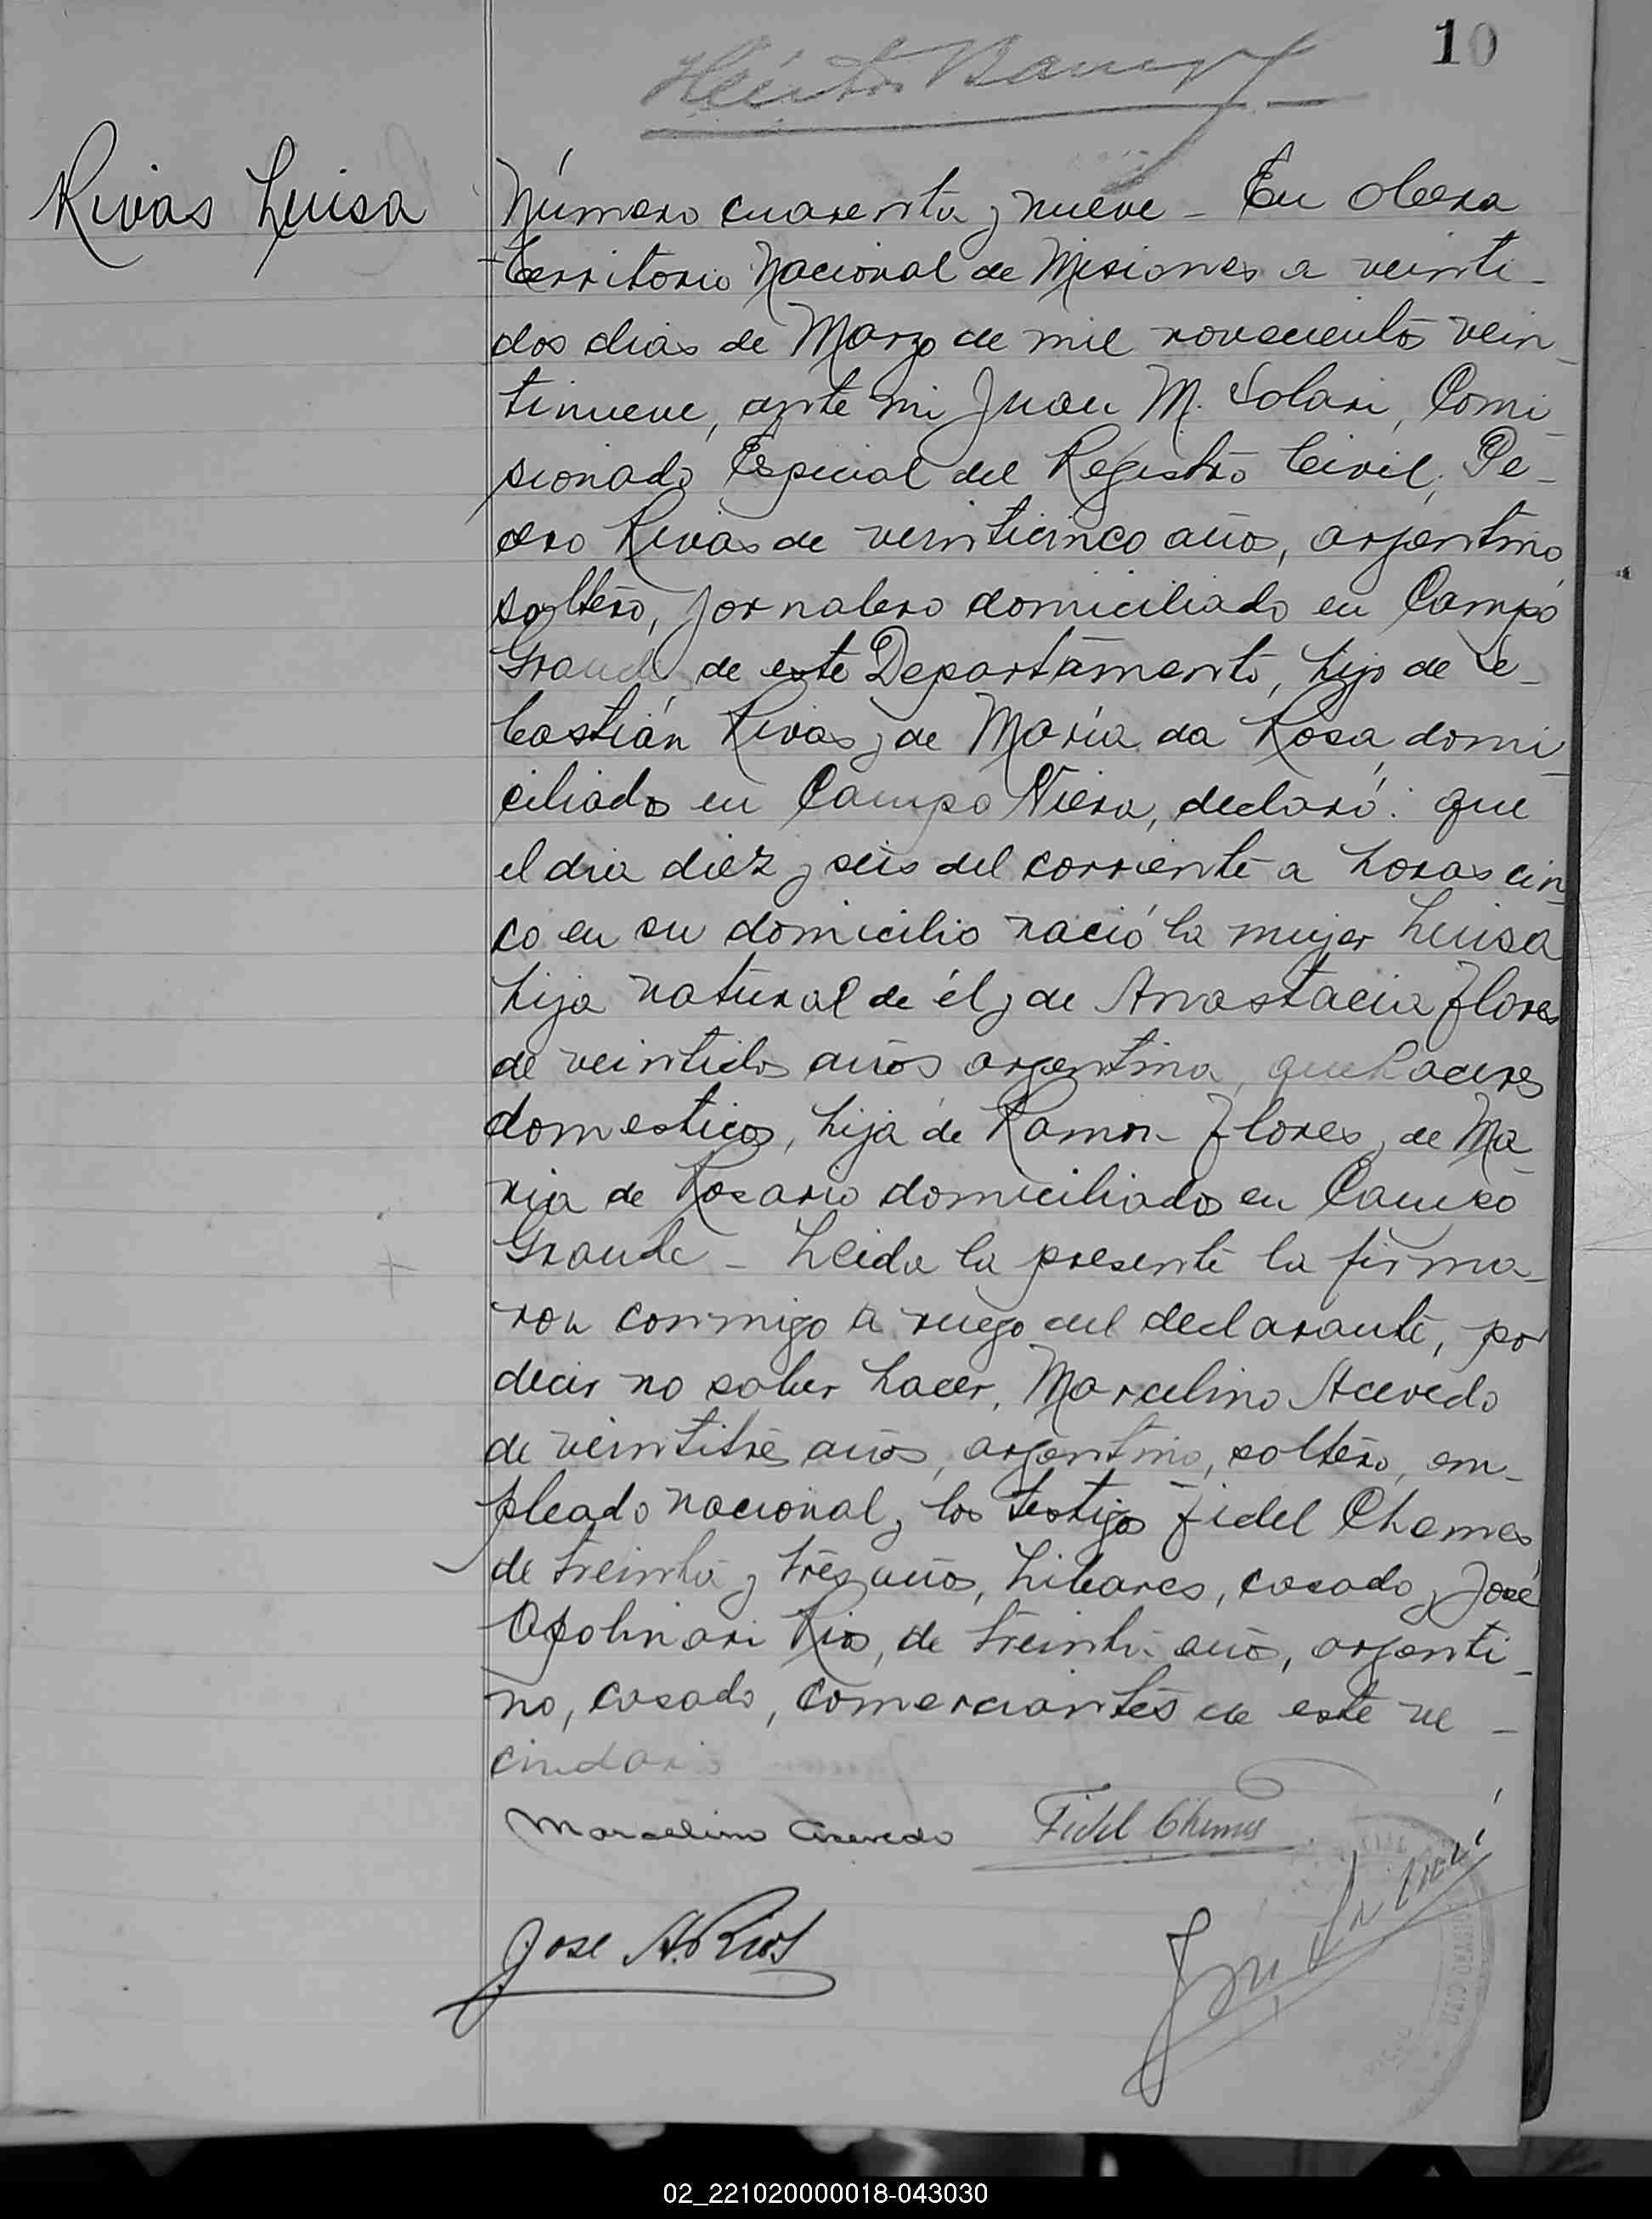 10
Rivas Luisa
Número cuarenta y nueve - En Obera
Territorio Nacional de Misiones a veinti-
dos dias de Marzo de mil novecientos vein-
tinueve, ante mi Juan M. Solari, Comi-
sionado Especial del Registro Civil, Pe-
dro Rivas de veinticinco años, argentino,
soltero, jornalero domiciliado en Campo
Grande de este Departamento, hijo de Se-
bastián Rivas y de María da Rosa, domi-
ciliados en Campo Viera, declaró: que
el dia diez y seis del corriente a horas cin-
co en su domicilio nació la mujer Luisa
hija natural de él y de Anastacia Flores
de veintidos años argentina, quehaceres
domesticos, hija de Ramon Flores y de Ma-
ria de Rosario domiciliados en Campo
Grande - Leida la presente la firma-
ron conmigo a ruego del declarante, por
decir no saber hacer, Marcelino Acevedo
de veintitres años, argentino, soltero, em-
pleado nacional y los testigos Fidel Chemes
de treinta y tres años, Libanes, casado y José
Apolinari Rios, de treinta años, argenti-
no, casado, comerciantes de este ve-
cindario
Marcelino Acevedo Fidel Chemes
Jose A. Rios
REGISTRO CIVIL
02_221020000018-043030